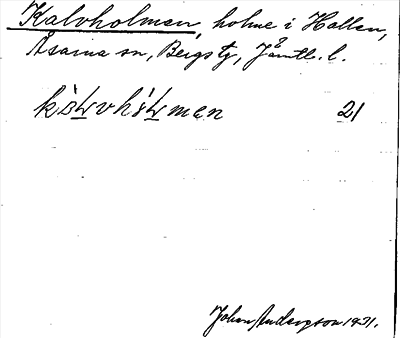 Kalvholmen, holme i Hallen,
Åsarna sn, Bergs tg, Jämtl. l.
21
Johan Andersson 1931.